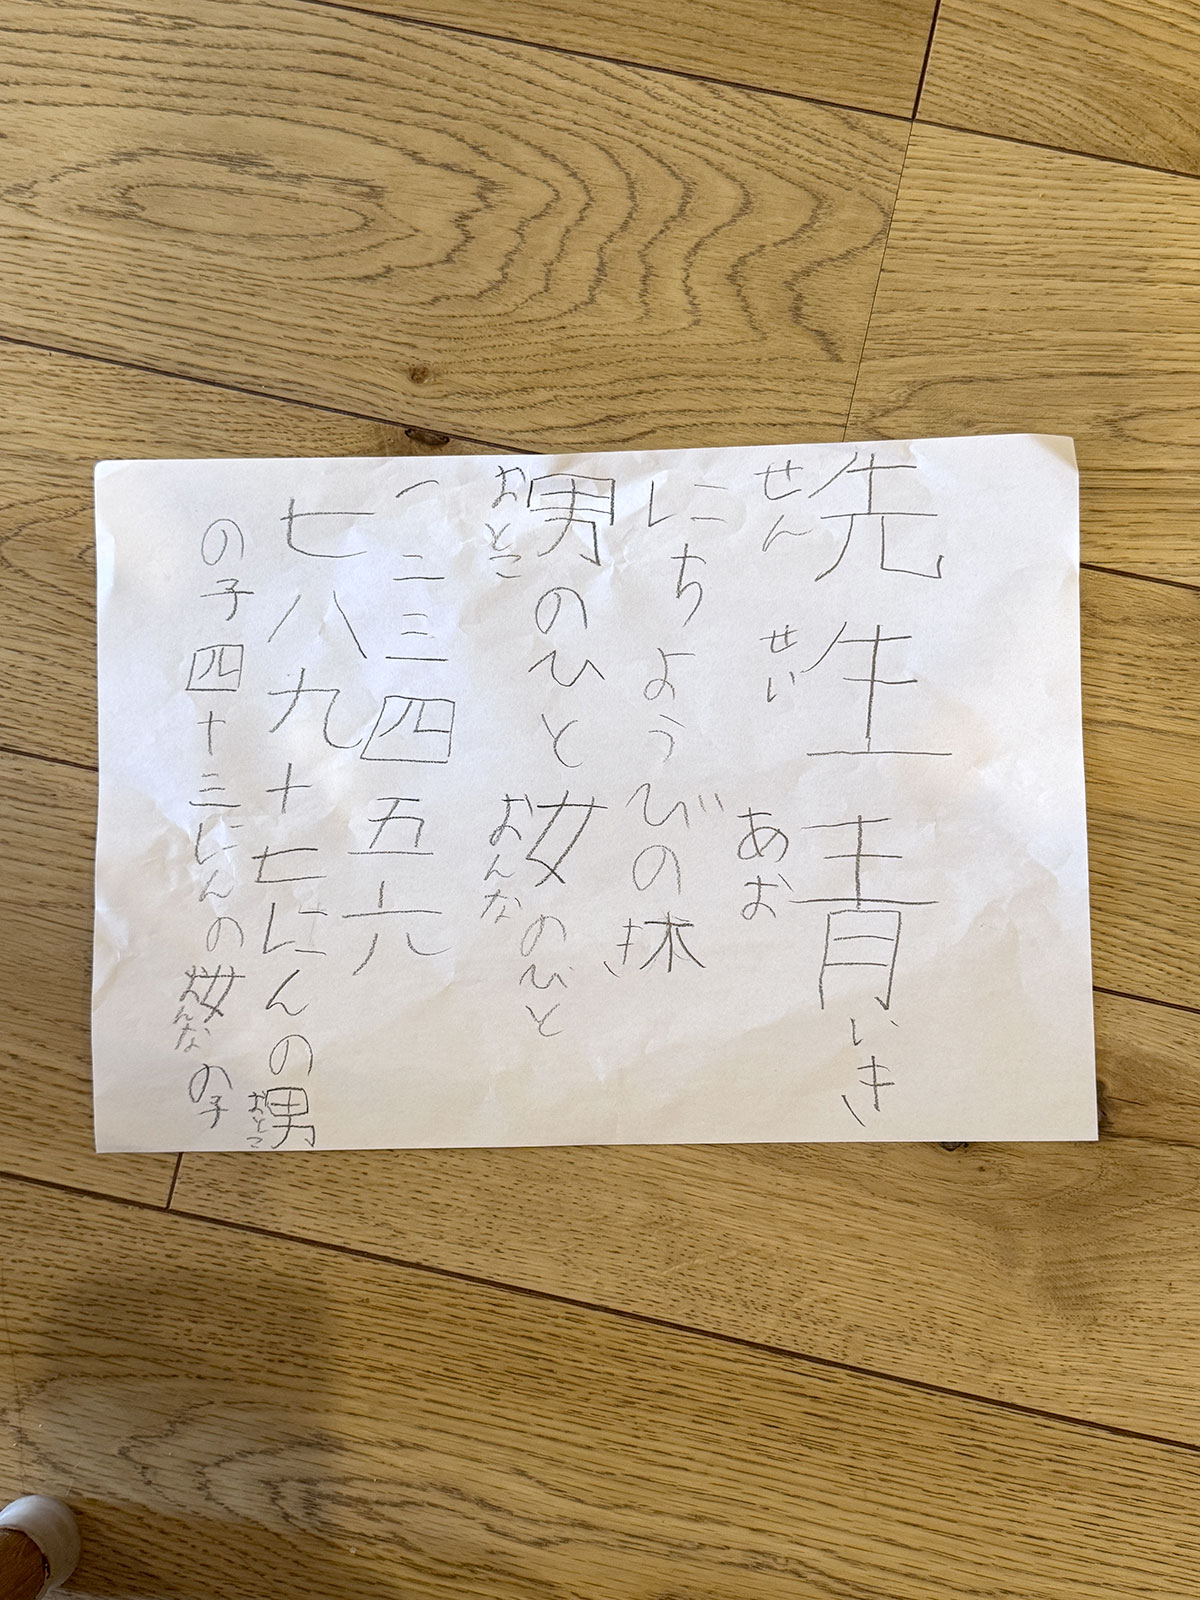 先生青いき
せんせいあお
にちようびの木
き
男のひと女のひと
おとこおんな
一二三四五六
七八九十七にんの男
おとこ
の子四十三にんの女の子
おんな